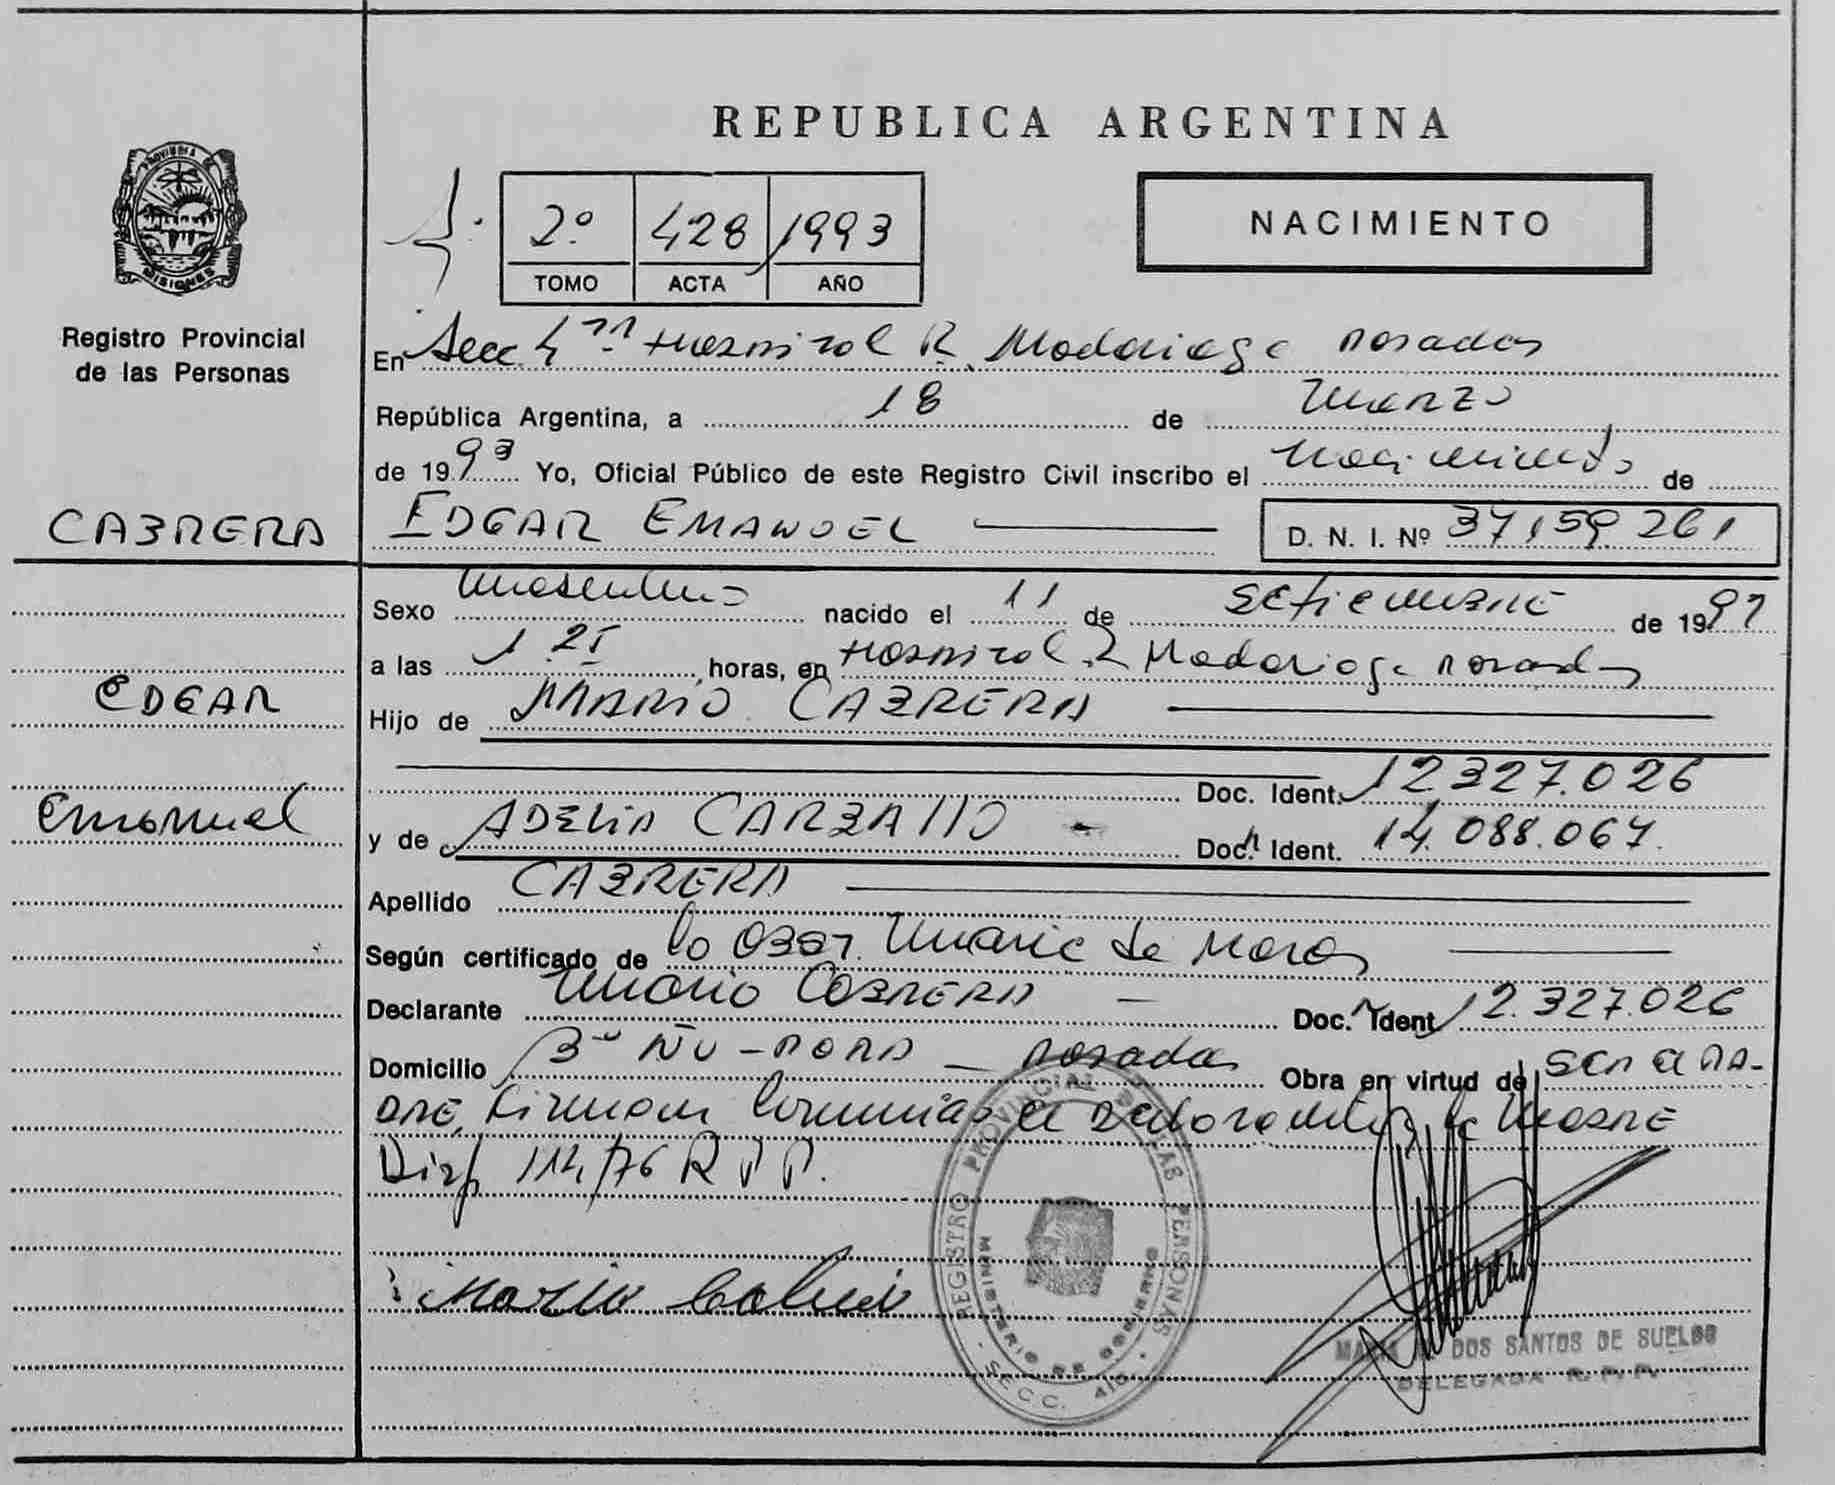 REPUBLICA ARGENTINA
PROVINCIA DE MISIONES
Registro Provincial
de las Personas
2º 428 1993
TOMO ACTA AÑO
NACIMIENTO
En Secc. 4ª Hospital R. Madariaga Posadas
República Argentina, a 18 de Marzo
de 1993 Yo, Oficial Público de este Registro Civil inscribo el nacimiento de
CABRERA
EDGAR EMANUEL D. N. I. Nº 37.159.261
Sexo Masculino nacido el 11 de Setiembre de 1992
a las 1 25 horas, en Hospital R Madariaga Posadas
EDGAR
Hijo de MARIO CABRERA
Doc. Ident. 12.327.026
Emanuel
y de ADELIA CARBALLO Doc. Ident. 14.088.067.
Apellido CABRERA
Según certificado de la Obst. Marie de
Declarante Mario CABRERA Doc. Ident 12.327.026
Domicilio Bº ÑU-PORA Posadas Obra en virtud de ser el PA-
DRE, Firman Conmigo el Declarante y la Madre
Disp 114/76 R P P.
Mario Cabrera
REGISTRO PROVINCIAL DE LAS PERSONAS
MINISTERIO DE GOBIERNO
SECC. 4ta
MARIA DOS SANTOS DE SUELOS
DELEGADA R. P. P.